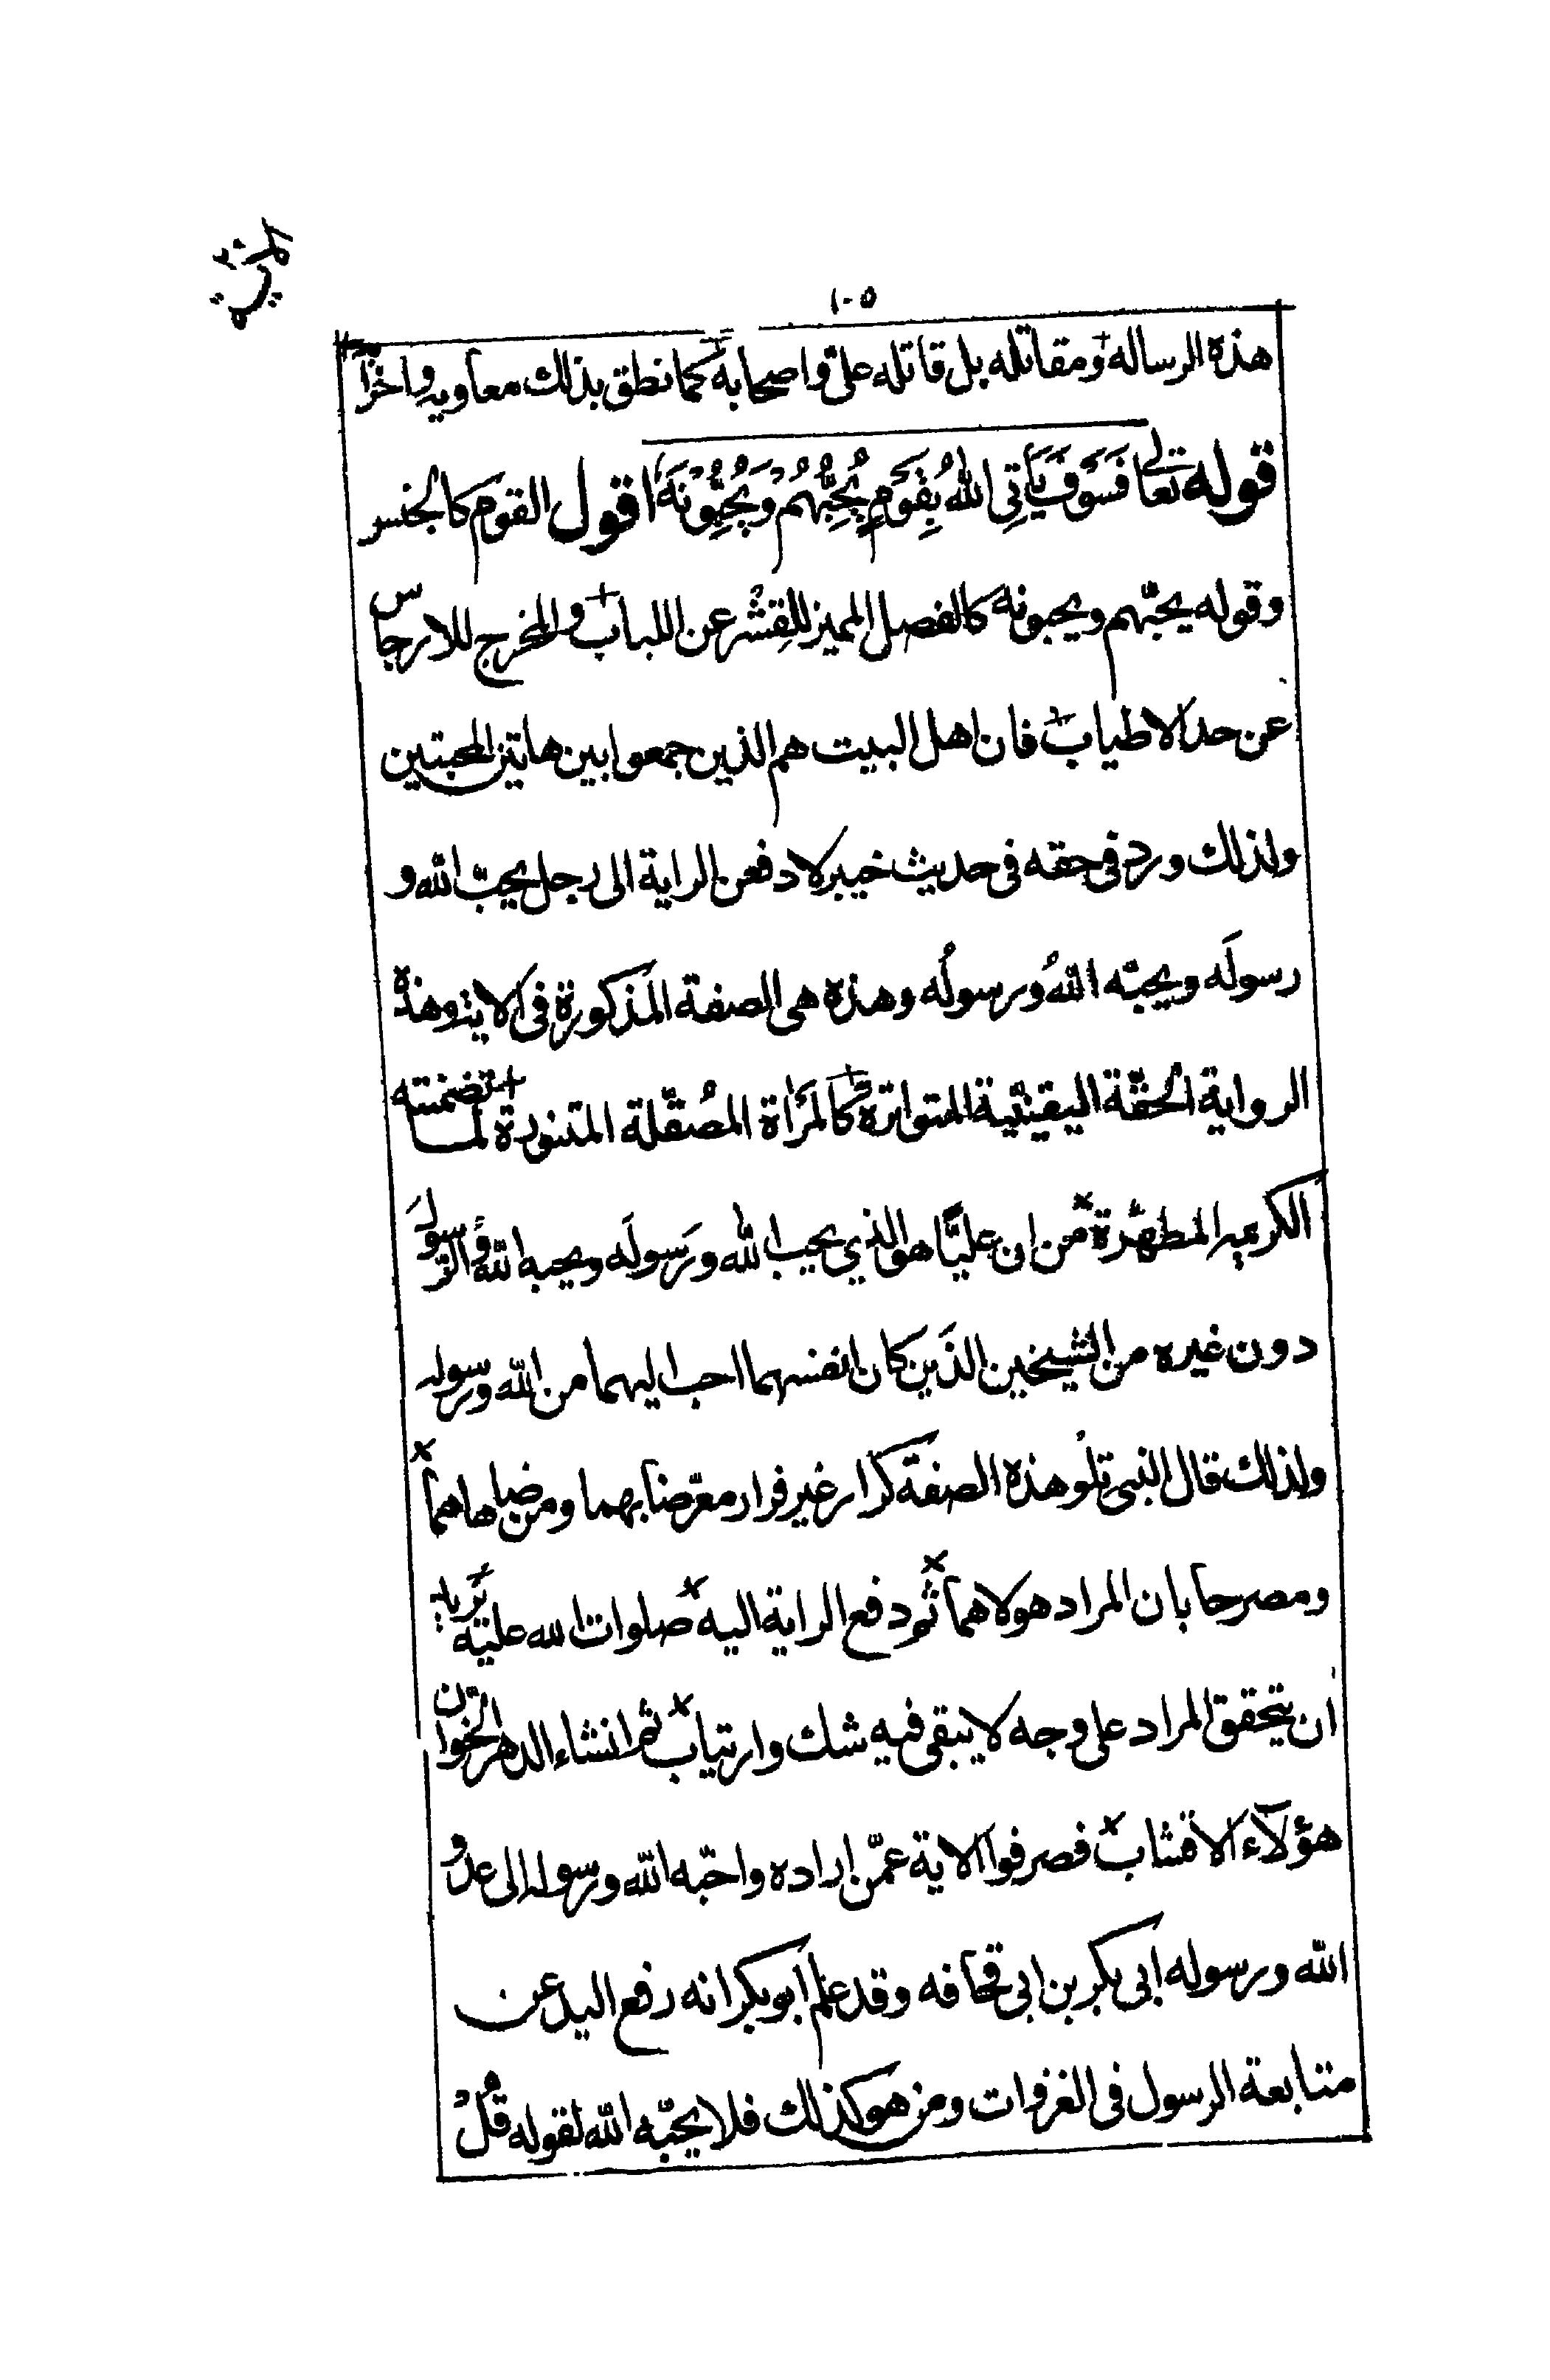 ١٠٥
هذه الرساله ومقاتله بل قاتله علي واصحابه كما نطق بذلك معاويه واخرا
قوله تعالى فَسَوْفَ يَأْتِي اللهُ بِقَوْمٍ يُحِبُّهُمْ وَيُحِبُّونَهُ اقول القوم كالجنس
وقوله يحبّهم ويحبونه كالفصل المميز للقِشْر عن اللباب والمخرج للارجاس
عن حد الاطياب فان اهل البيت هم الذين جمعوا بين هاتين المحبتين
ولذلك ورد في حقه في حديث خيبر لادفعن الراية الى رجل يحبّ الله و
رسولَه ويحبّه اللهُ ورسولُه وهذه هي الصفة المذكورة في الاية وهذه
الرواية الحقّة اليقينيّة المتواترة كالمرَاة المصُقّلة المتنورة لما تضمنته
الكريمه المطهّرة من ان عليّا هو الذي يحب الله ورَسولَه ويحبه اللهُ والرسولُ
دون غيره من الشيخين الذَين كان انفسهما احب اليهما من الله ورسوله
ولذلك قال النبي تلو هذه الصفة كرار غير فرار معرّضا بهما ومن ضاهاهما
ومصرحا بان المراد هو لا هما ثم دفع الراية اليه صلوات الله عليه
ان يتحقق المراد على وجه لا يبقى فيه شك وارتياب ثم انشاء الدهر الخوان
هؤلآء الاقشاب فصرفوا الاية عمّن اراده واحبّه الله ورسوله الى عدو
الله ورسوله ابى بكر بن ابي قحافه وقد علم ابو بكر انه رفع اليد عن
متابعة الرسول في الغزوات ومن هو كذلك فلا يحبّه الله لقوله قُلْ